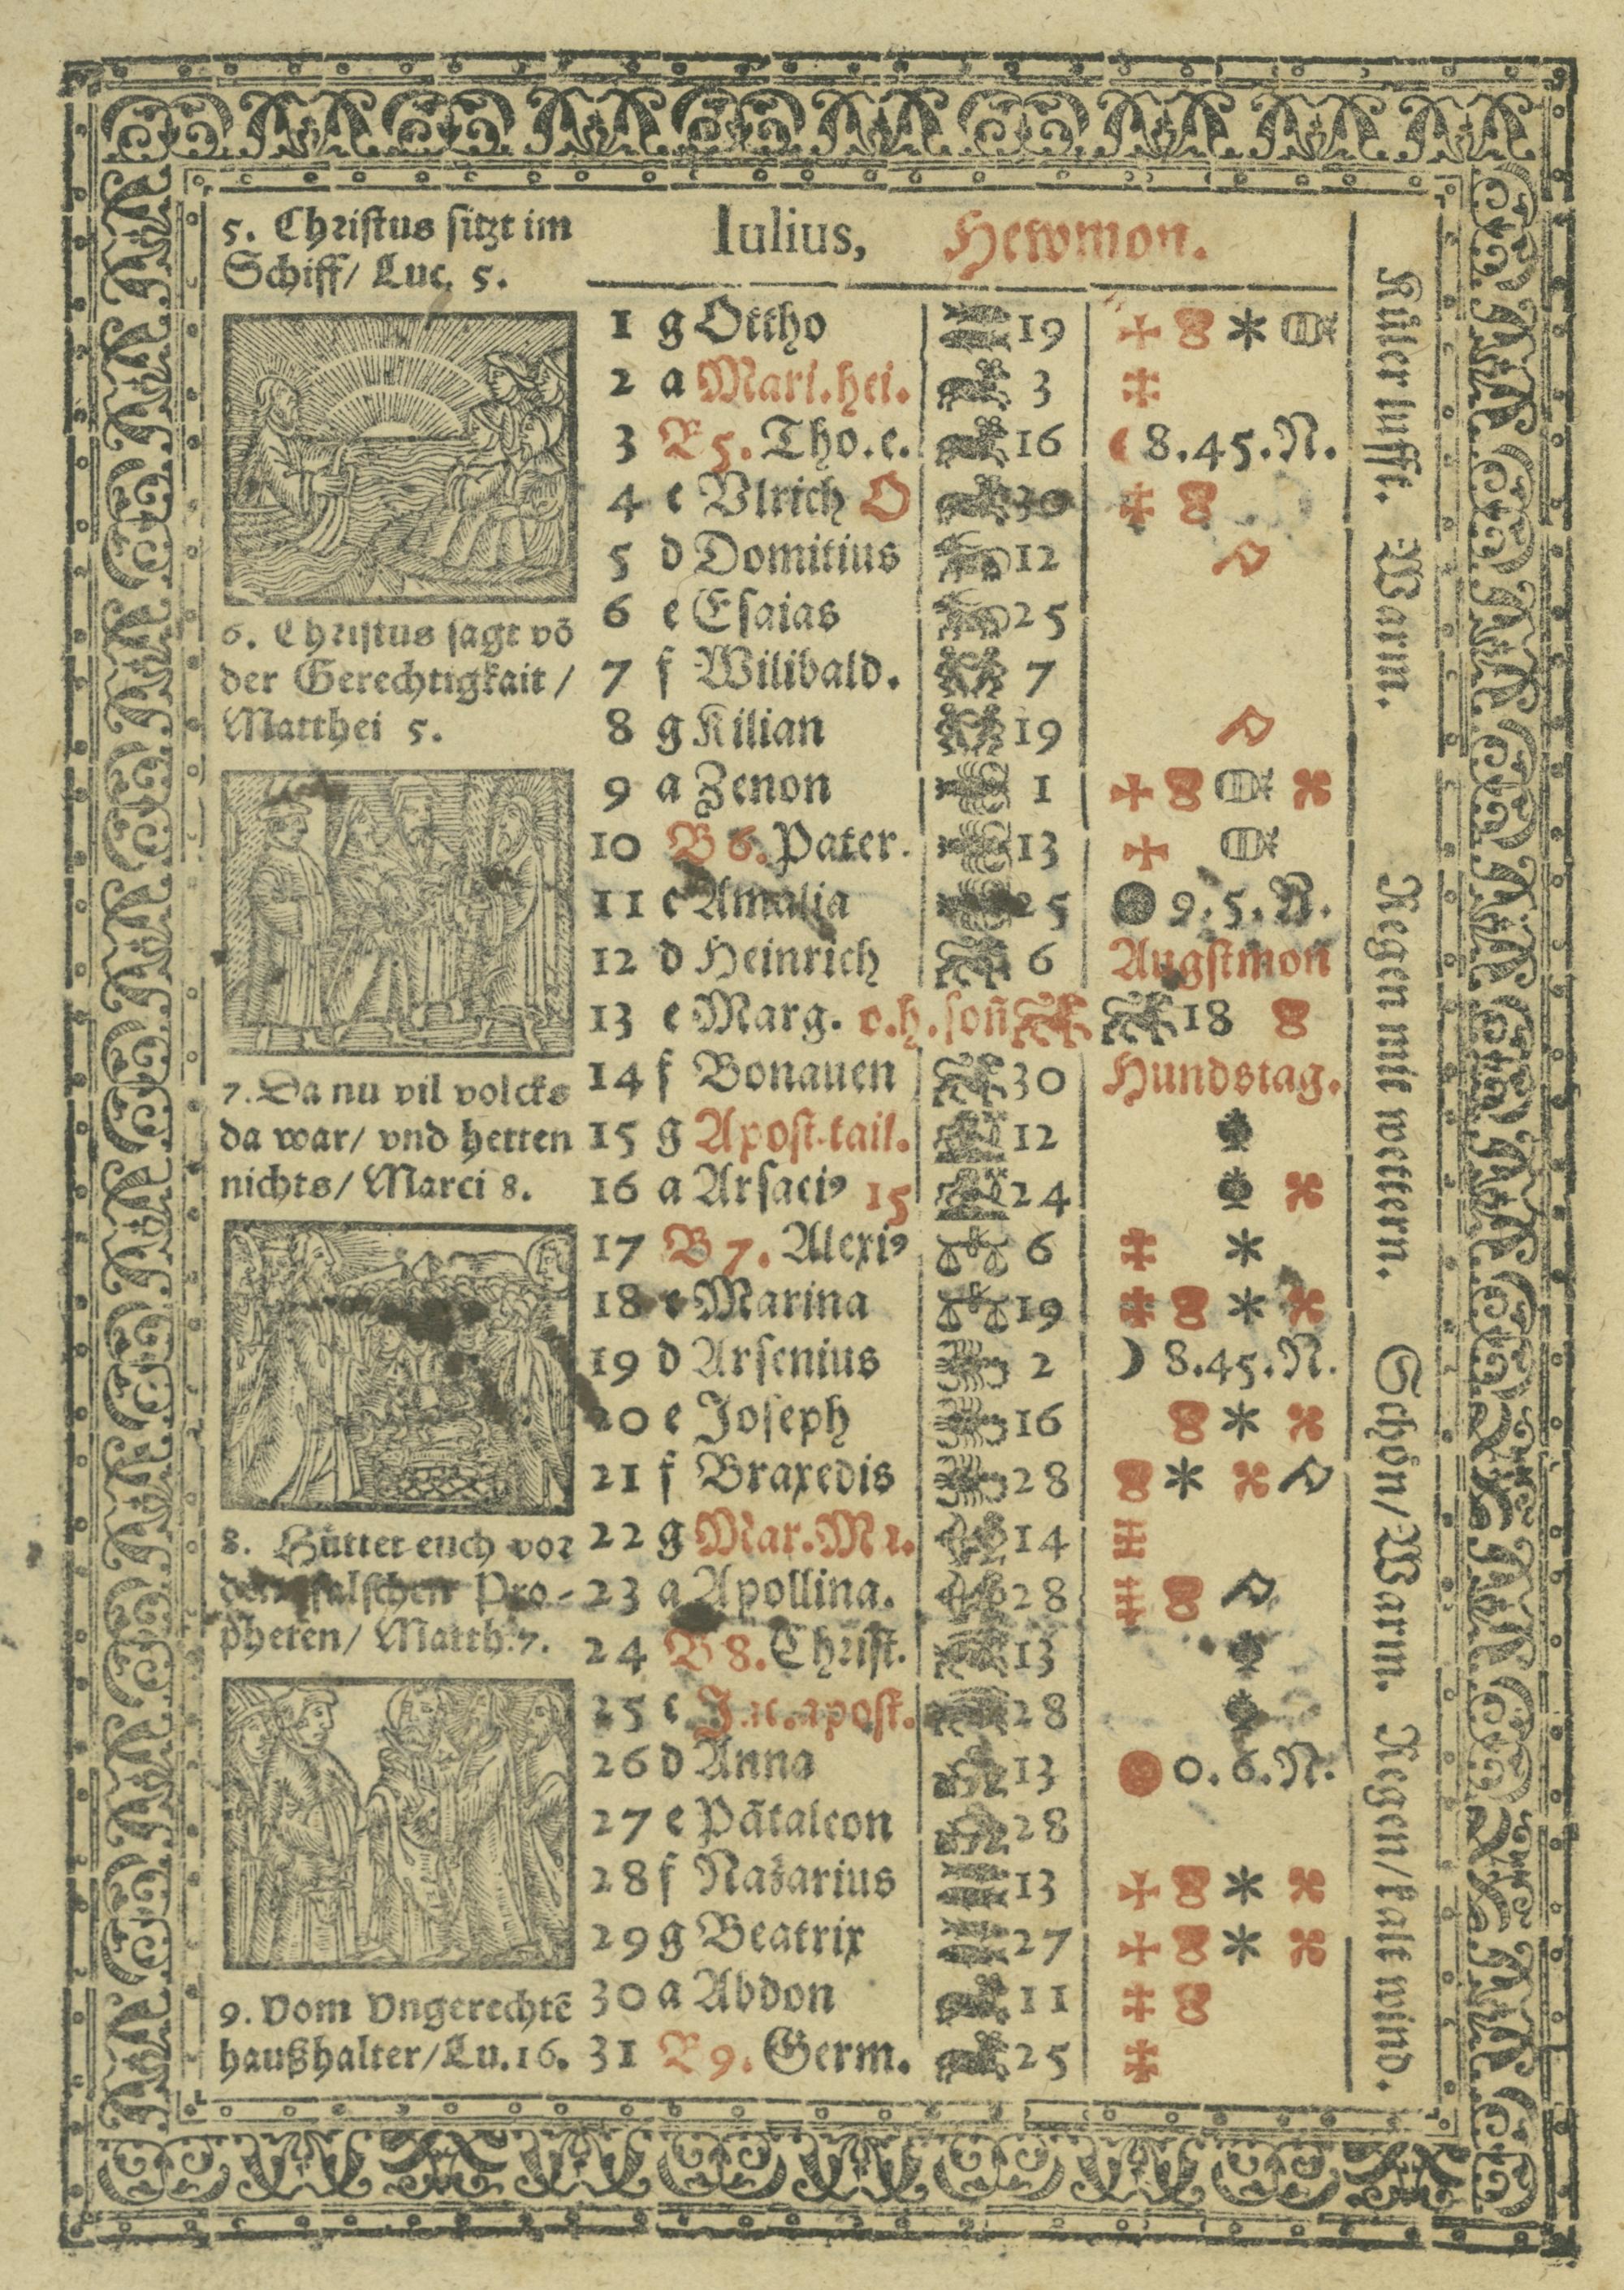 5. Christus sitzt im
Schiff/ Luc. 5.
6. Christus sagt vō
der Gerechtigkait /
Matthei 5.
7. Da nu vil volcks
da war/ vnd hetten
nichts/ Marci 8.
8. Hüttet euch vor
den falschen Pro-
pheten/ Matth. 7.
9. Vom Vngerechtē
haußhalter/Lu. 16.
Iulius, Hewmon.
1 g Ottho 19
2 a Mari.hei. 3
3 B 5. Tho.e. 16 8.45.N.
4 c Vlrich O 30
5 d Domitius 12
6 e Esaias 25
7 f Wilibald. 7
8 g Kilian 19
9 a Zenon 1
10 B 6. Pater. 13
11 c Amalia 25 9.5.N.
12 d Heinrich 6 Augstmon
13 e Marg. o.h.soñ 18
14 f Bonauen 30 Hundstag.
15 g Apost.tail. 12
16 a Arsaciꝰ 15 24
17 B 7. Alexiꝰ 6
18 c Marina 19
19 d Arsenius 2 8.45.N.
20 e Joseph 16
21 f Braxedis 28
22 g Mar.M 1. 14
23 a Apollina. 28
24 B 8. Christ. 13
25 c J.ac.apost. 28
26 d Anna 13 0.6.N.
27 e Pātaleon 28
28 f Nazarius 13
29 g Beatrix 27
30 a Abdon 11
31 B 9. Germ. 25
Küler lufft. Warm. Regen mit wettern. Schön/Warm. Regen/kalt wind.